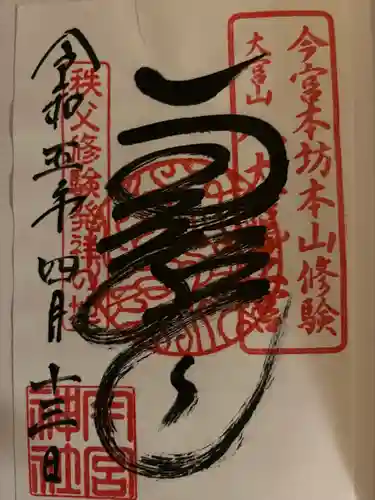 今宮本坊本山修験
大宮山
秩父修験発祥の地
令和五年四月十三日
今宮
神社